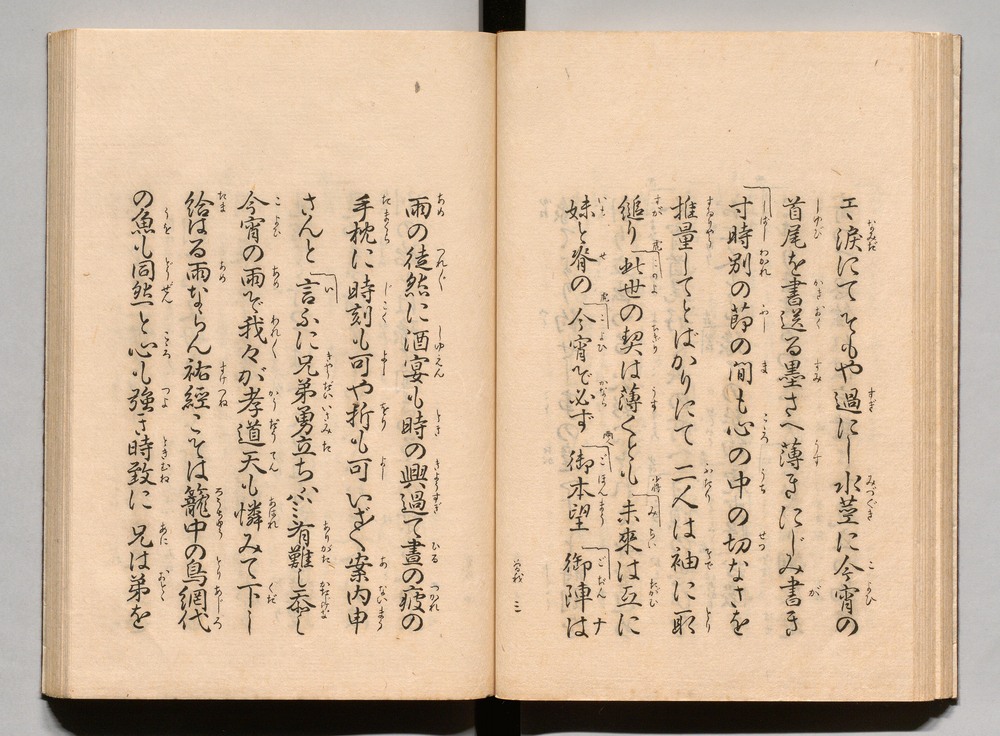 エ涙にてそもや過にし水莖に今宵の
首尾を書送る墨さへ薄きにじみ書き
寸時別の節の間も心の中の切なさを
推量してとばかりにて二人は袖に取
縋り此世の契は薄くとも未來は互に
妹と脊の今宵ぞ必ず御本望御陣は
曽我 三
雨の徒然に酒宴も時の興過て晝の疲の
手枕に時刻も可や折も可いざ〳〵案内申
さんと言ふに兄弟勇立ち有難し忝し
今宵の雨ぞ我々が孝道天も憐みて下し
給はる雨ならん祐經こそは籠中の鳥網代
の魚も同然と心も強き時致に兄は弟を